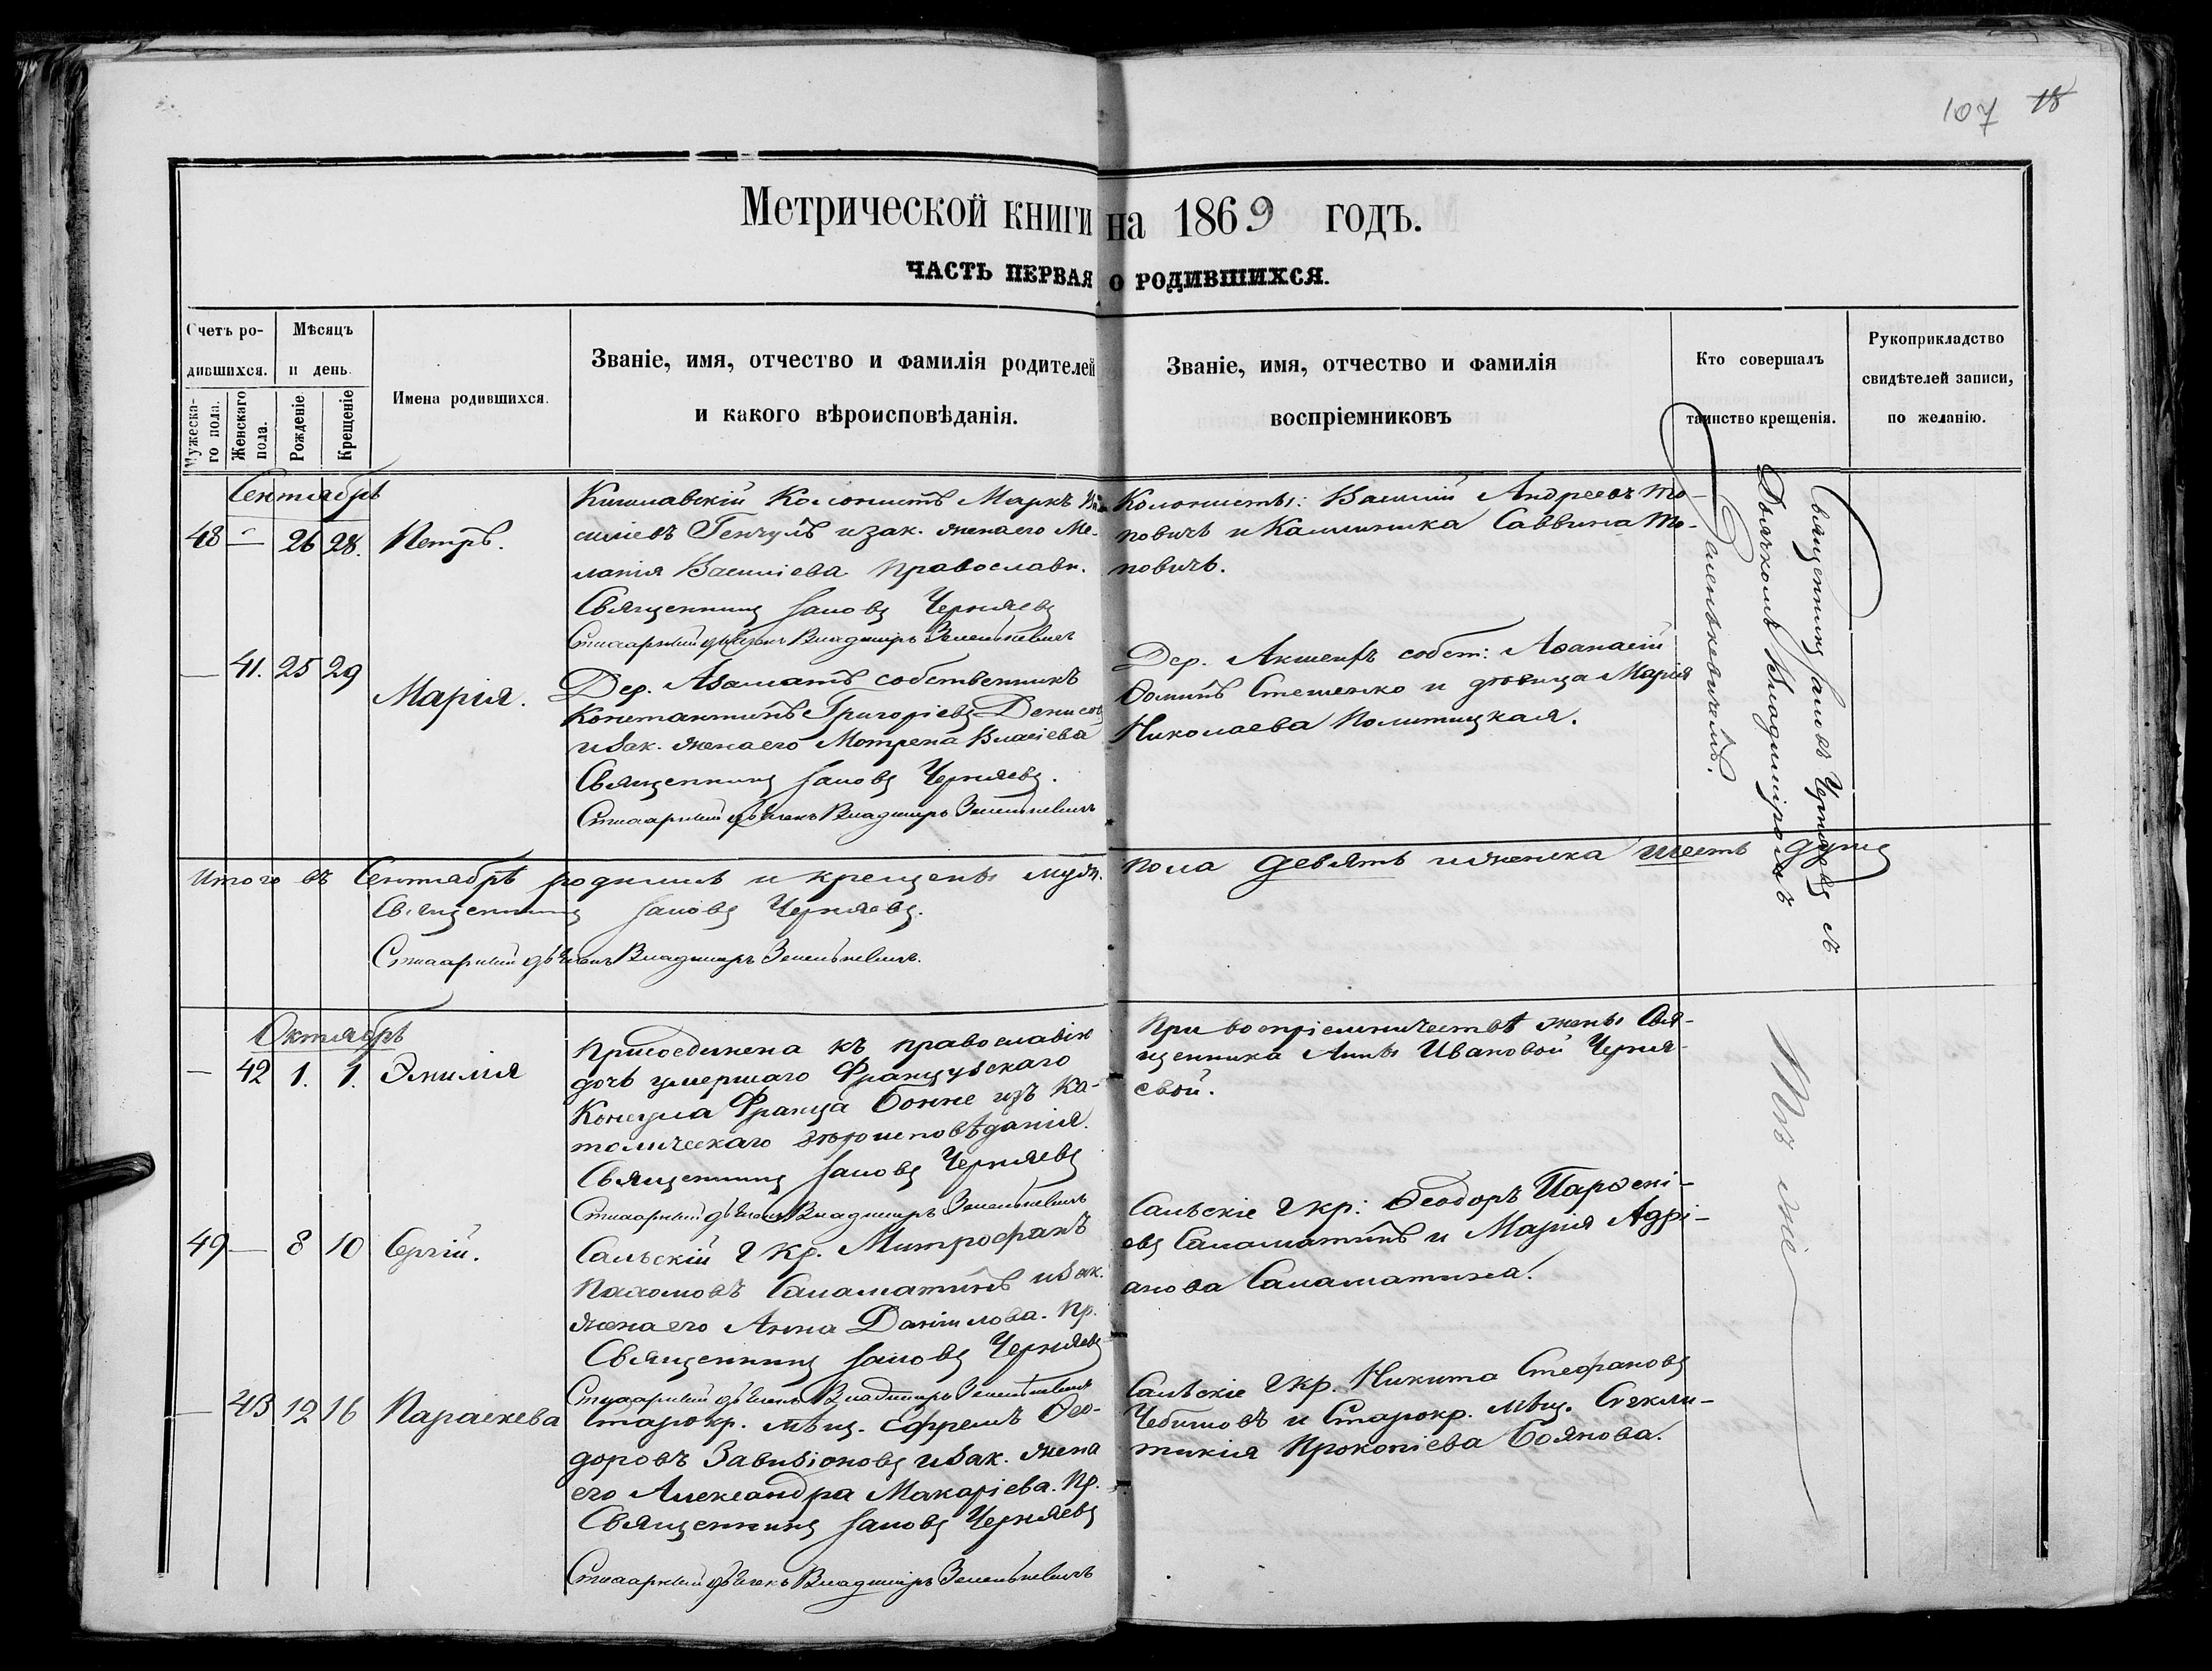 107 18
Метрической книги на 1869 годъ.
ЧАСТЬ ПЕРВАЯ О РОДИВШИХСЯ.
Счетъ родившихся.
Мужескаго пола.
Женскаго пола.
Мѣсяцъ и день.
Рожденіе.
Крещеніе
Имена родившихся.
Званіе, имя, отчество и фамилія родителей
и какого вѣроисповѣданія.
Званіе, имя, отчество и фамилія
воспріемниковъ
Кто совершалъ
таинство крещенія.
Рукоприкладство
свидѣтелей записи,
по желанію.
Сентябрѣ
48 — 26 28. Петръ.
Кишлавскій Колонистъ Маркъ Ва-
силіевъ Генчулъ и зак. жена его Ме-
ланія Василіева православн.
Священникъ Іаковъ Черняевъ
дьячекъ Владиміръ Зенькевичъ
Колонисты: Василій Андреевъ По-
повичъ и Каллиника Саввина По-
повичъ.
— 41. 25 29 Марія.
Дер. Азаматъ собственникъ
Константинъ Григоріевъ Денисовъ
и зак. жена его Мотрена Власіева
Священникъ Іаковъ Черняевъ.
дьячекъ Владиміръ Зенькевичъ
Дер. Акшеихъ собст: Аѳанасій
Ѳоминъ Стешенко и дѣвица Марія
Николаева Политицкая.
Священникъ Іаковъ Черняевъ съ
Дьячкомъ Владиміромъ
Зенькевичемъ.
Итого въ Сентябрѣ родились и крещены муж. пола девять и женска шесть душъ
Священникъ Іаковъ Черняевъ.
дьячекъ Владиміръ Зенькевичъ.
Октябрѣ
— 42 1. 1. Эмилія
Присоединена къ православію
дочь умершаго Французскаго
Консула Франца Бонне изъ Ка-
толическаго вѣроисповѣданія.
Священникъ Іаковъ Черняевъ
дьячекъ Владиміръ Зенькевичъ
При воспріемничествѣ жены Свя-
щенника Анны Ивановой Черня-
евой.
49 — 8 10 Сергій.
Сальскій г. кр. Митрофанъ
Пахомовъ Саламатинъ и зак.
жена его Анна Даніилова. Пр.
Священникъ Іаковъ Черняевъ
дьячекъ Владиміръ Зенькевичъ
Сальскіе г. кр: Ѳеодоръ Парѳені-
евъ Саламатинъ и Марія Адрі-
анова Саламатина.
— 43 12 16 Параскева
Старокр. мѣщ. Ефремъ Ѳео-
доровъ Завизіоновъ и зак. жена
его Александра Макаріева. Пр.
Священникъ Іаковъ Черняевъ
дьячекъ Владиміръ Зенькевичъ
Сальскіе г. кр. Никита Стефановъ
Чебишовъ и Старокр. мѣщ. Синкли-
тикія Прокопіева Боянова.
Тѣ же